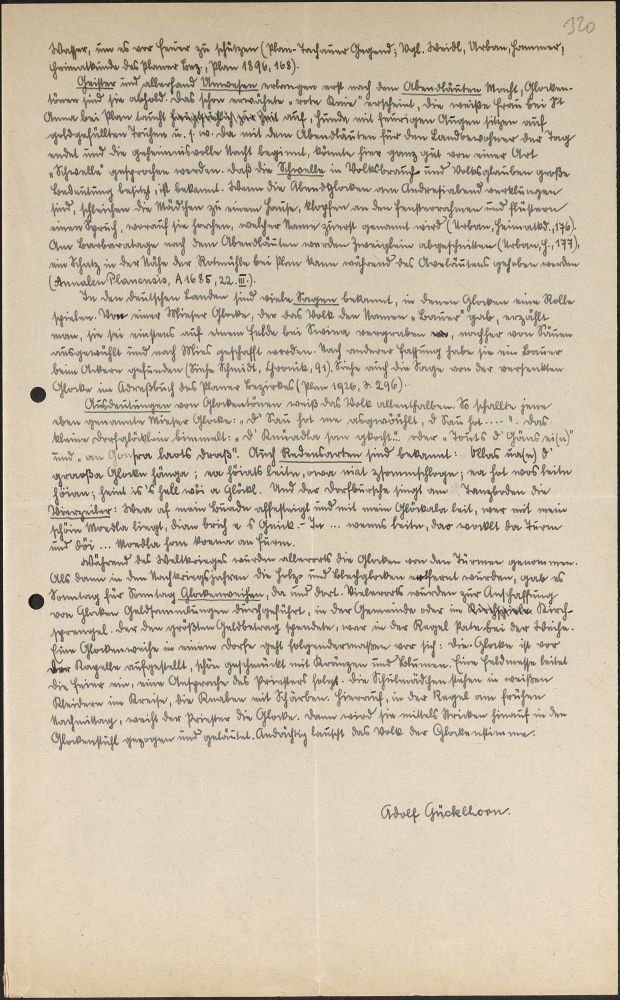 320
Wasser, um es vor Feuer zu schützen (Plan-Tachauer Gegend; Vgl. Weidl, Urban, Hammer,
Heimatkunde des Planer Bez., Plan 1896, 168).
Geister und allerhand Unwesen erlangen erst nach dem Abendläuten Macht, Glocken-
tönen sind sie abhold. Das schon erwähnte „rote Knie" erscheint, die weiße Frau bei St
Anna bei Plan taucht auf, Hunde mit feurigen Augen sitzen auf
goldgefüllten Truhen u. s. w. Da mit dem Abendläuten für den Landbewohner der Tag
endet und die geheimnisvolle Nacht beginnt, könnte hier ganz gut von einer Art
„Schwelle" gesprochen werden. Daß die Schwelle in Volksbrauch und Volksglauben große
Bedeutung besitzt, ist bekannt. Wenn die Abendglocken am Andreiabend verklungen
sind, schleichen die Mädchen zu einem Hause, klopfen an den Fensterrahmen und flüstern
einen Spruch, worauf sie horchen, welcher Name zuerst genannt wird (Urban, Heimatkd., 176).
Am Barbaratage nach dem Abendläuten werden Zweiglein abgeschnitten (Urban, H., 177),
ein Schatz in der Nähe der Rotmühle bei Plan kann während des Aveläutens gehoben werden
(Annalen Planensis, A 1685, 22. III.).
In den deutschen Landen sind viele Sagen bekannt, in denen Glocken eine Rolle
spielen. Von einer Mieser Glocke, der das Volk den Namen „Bauer" gab, erzählt
man, sie sei einstens auf einem Felde bei Svina vergraben, nachher von Säuen
ausgewühlt und nach Mies geschafft worden. Nach anderer Fassung habe sie ein Bauer
beim Ackern gefunden (Siehe Schmidt, Chronik, 91). Siehe auch die Sage von der versenkten
Glocke im Adreßbuch des Planer Bezirkes (Plan 1926, S. 296).
Ausdeutungen von Glockentönen weiß das Volk allenthalben. So schallte jene
eben genannte Mieser Glocke: „D' Sau hot me asgwöuhlt, d Sau hot ....". Das
kleine Dorfglöcklein bimmelt: „D' Knüadla san gkocht" oder „Touts d' Gäns ei(n)"
und „an Gonsra haots draaß". Auch Redensarten sind bekannt: Ollas ua(n) d'
graaßa Glocken hänga; ea häiats leitn, owa niat zsommschloge; ea hot wos leitn
häian; heint is 's hell wöi a Glöckl. Und der Dorfbursche singt am Tanzboden die
Vierzeiler: Wea af mein Bua affesteigt und mit mein Glöckala leit, wer mit mein
schöin Moedla liegt, dian brich e s Gnick. – Je ... wenns leitn, dao wocklt da Turm
und döi ... Moedla hom koena an Furm.
Während des Weltkrieges wurden allerorts die Glocken von den Türmen genommen.
Als dann in den Nachkriegsjahren die Holz- und Blechglocken entfernt wurden, gab es
Sonntag für Sonntag Glockenweihen, da und dort. Vielerorts wurden zur Anschaffung
von Glocken Geldsammlungen durchgeführt, in der Gemeinde oder im Kirch-
sprengel. Der den größten Geldbetrag spendete, war in der Regel Pate bei der Weihe.
Eine Glockenweihe in einem Dorfe geht folgendermaßen vor sich: Die Glocke ist vor
der Kapelle aufgestellt, schön geschmückt mit Kränzen und Blumen. Eine Feldmesse leitet
die Feier ein, eine Ansprache des Priesters folgt. Die Schulmädchen stehen in weißen
Kleidern im Kreise, die Knaben mit Schärben. Hierauf, in der Regel am frühen
Nachmittag, weiht der Priester die Glocke. Dann wird sie mittels Stricken hinauf in den
Glockenstuhl gezogen und geläutet. Andächtig lauscht das Volk der Glockenstimme.
Adolf Gücklhorn.